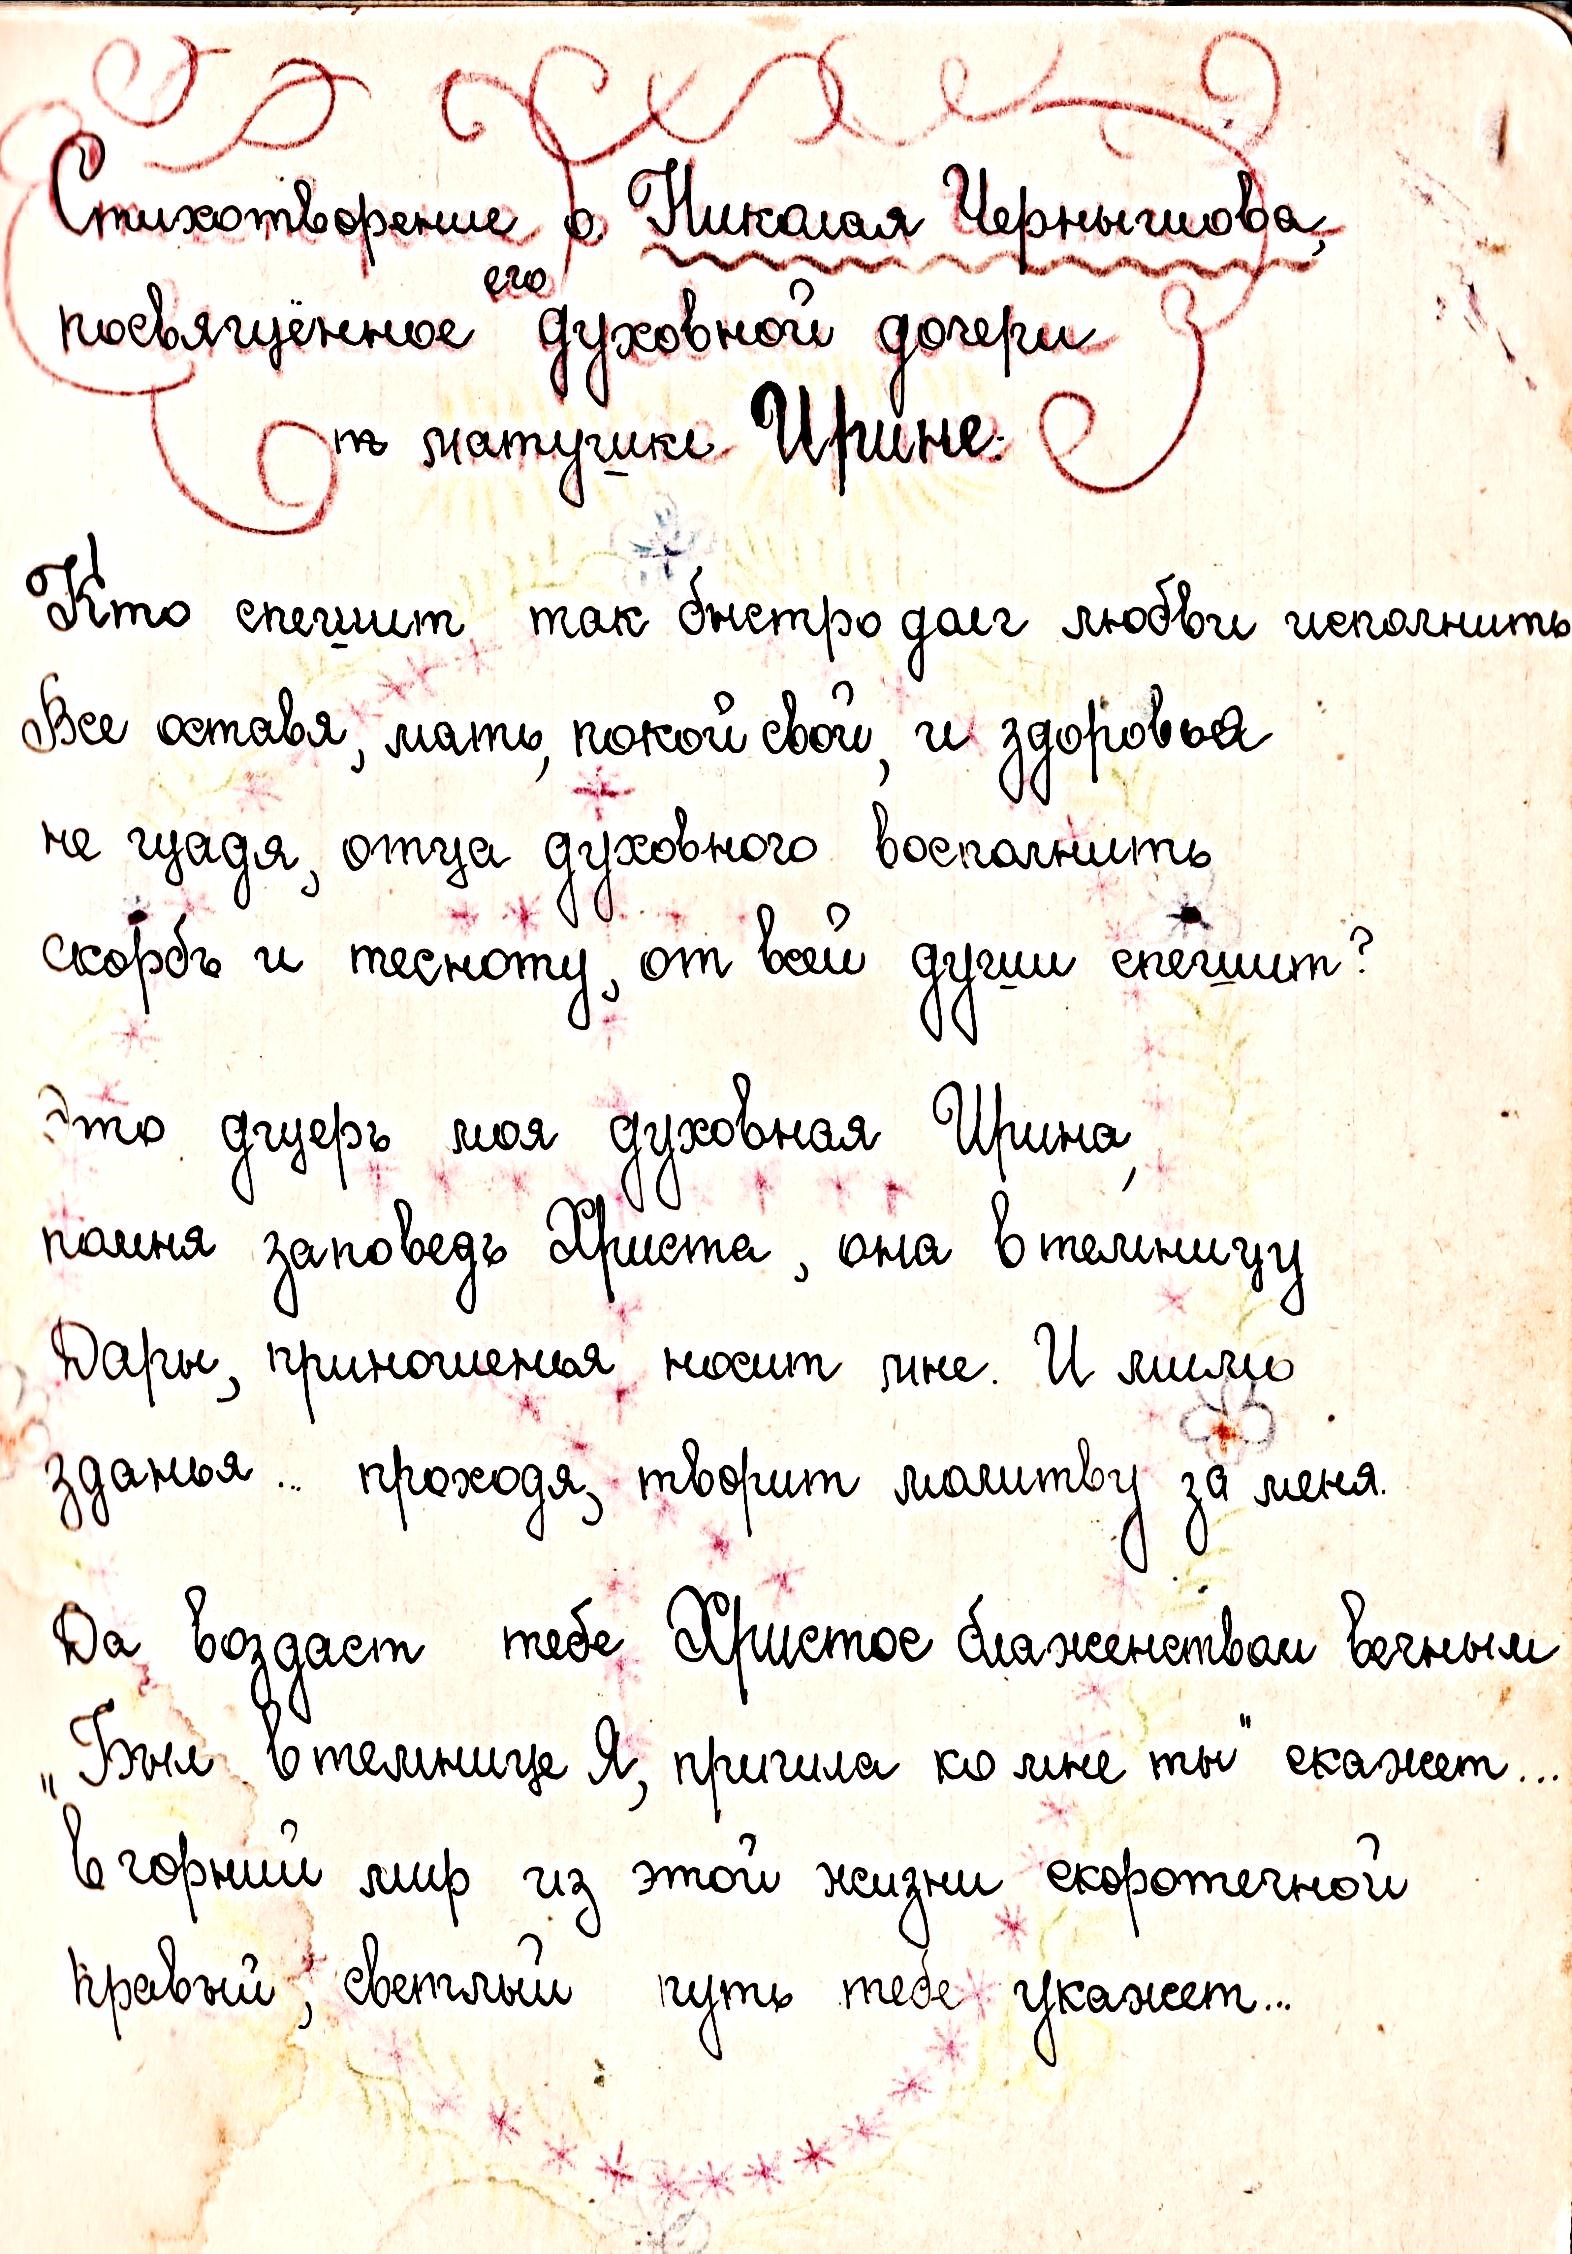 Стихотворение о. Николая Чернышова,
посвящённое его духовной дочери
матушке Ирине:
Кто спешит так быстро долг любви исполнить
Все оставя, мать, покой свой, и здоровья
не щадя, отца духовного восполнить
скорбь и тесноту, от всей души спешит?
Это дщерь моя духовная Ирина,
помня заповедь Христа, она в темницу
Дары, приношенья носит мне. И мимо
зданья... проходя, творит молитву за меня.
Да воздаст тебе Христос блаженством вечным
„Был в темнице Я, пришла ко мне ты" скажет...
в горний мир из этой жизни скоротечной
правый, светлый путь тебе укажет...